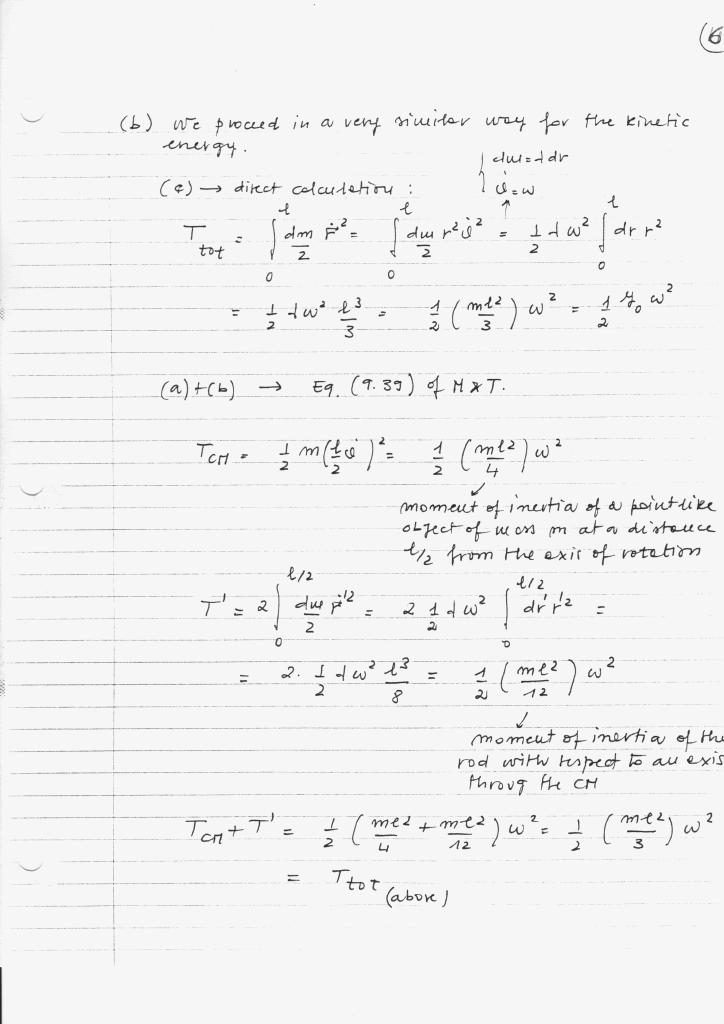 6
(b) We proceed in a very similar way for the kinetic
energy.
{ dm = λ dr
(c) → direct calculation : { φ̇ = ω
T_tot = ∫_0^l dm/2 ṙ² = ∫_0^l dm/2 r² φ̇² = 1/2 λ ω² ∫_0^l dr r²
= 1/2 λ ω² l³/3 = 1/2 (ml²/3) ω² = 1/2 I_0 ω²
(a)+(b) → Eq. (9.39) of M&T.
T_CM = 1/2 m (l/2 φ̇)² = 1/2 (ml²/4) ω²
moment of inertia of a pointlike
object of mass m at a distance
l/2 from the axis of rotation
T' = 2 ∫_0^{l/2} dm/2 ṙ'² = 2 1/2 λ ω² ∫_0^{l/2} dr' r'² =
= 2 · 1/2 λ ω² l³/8 = 1/2 (ml²/12) ω²
moment of inertia of the
rod with respect to an axis
throug the CM
T_CM + T' = 1/2 (ml²/4 + ml²/12) ω² = 1/2 (ml²/3) ω²
= T_tot (above)